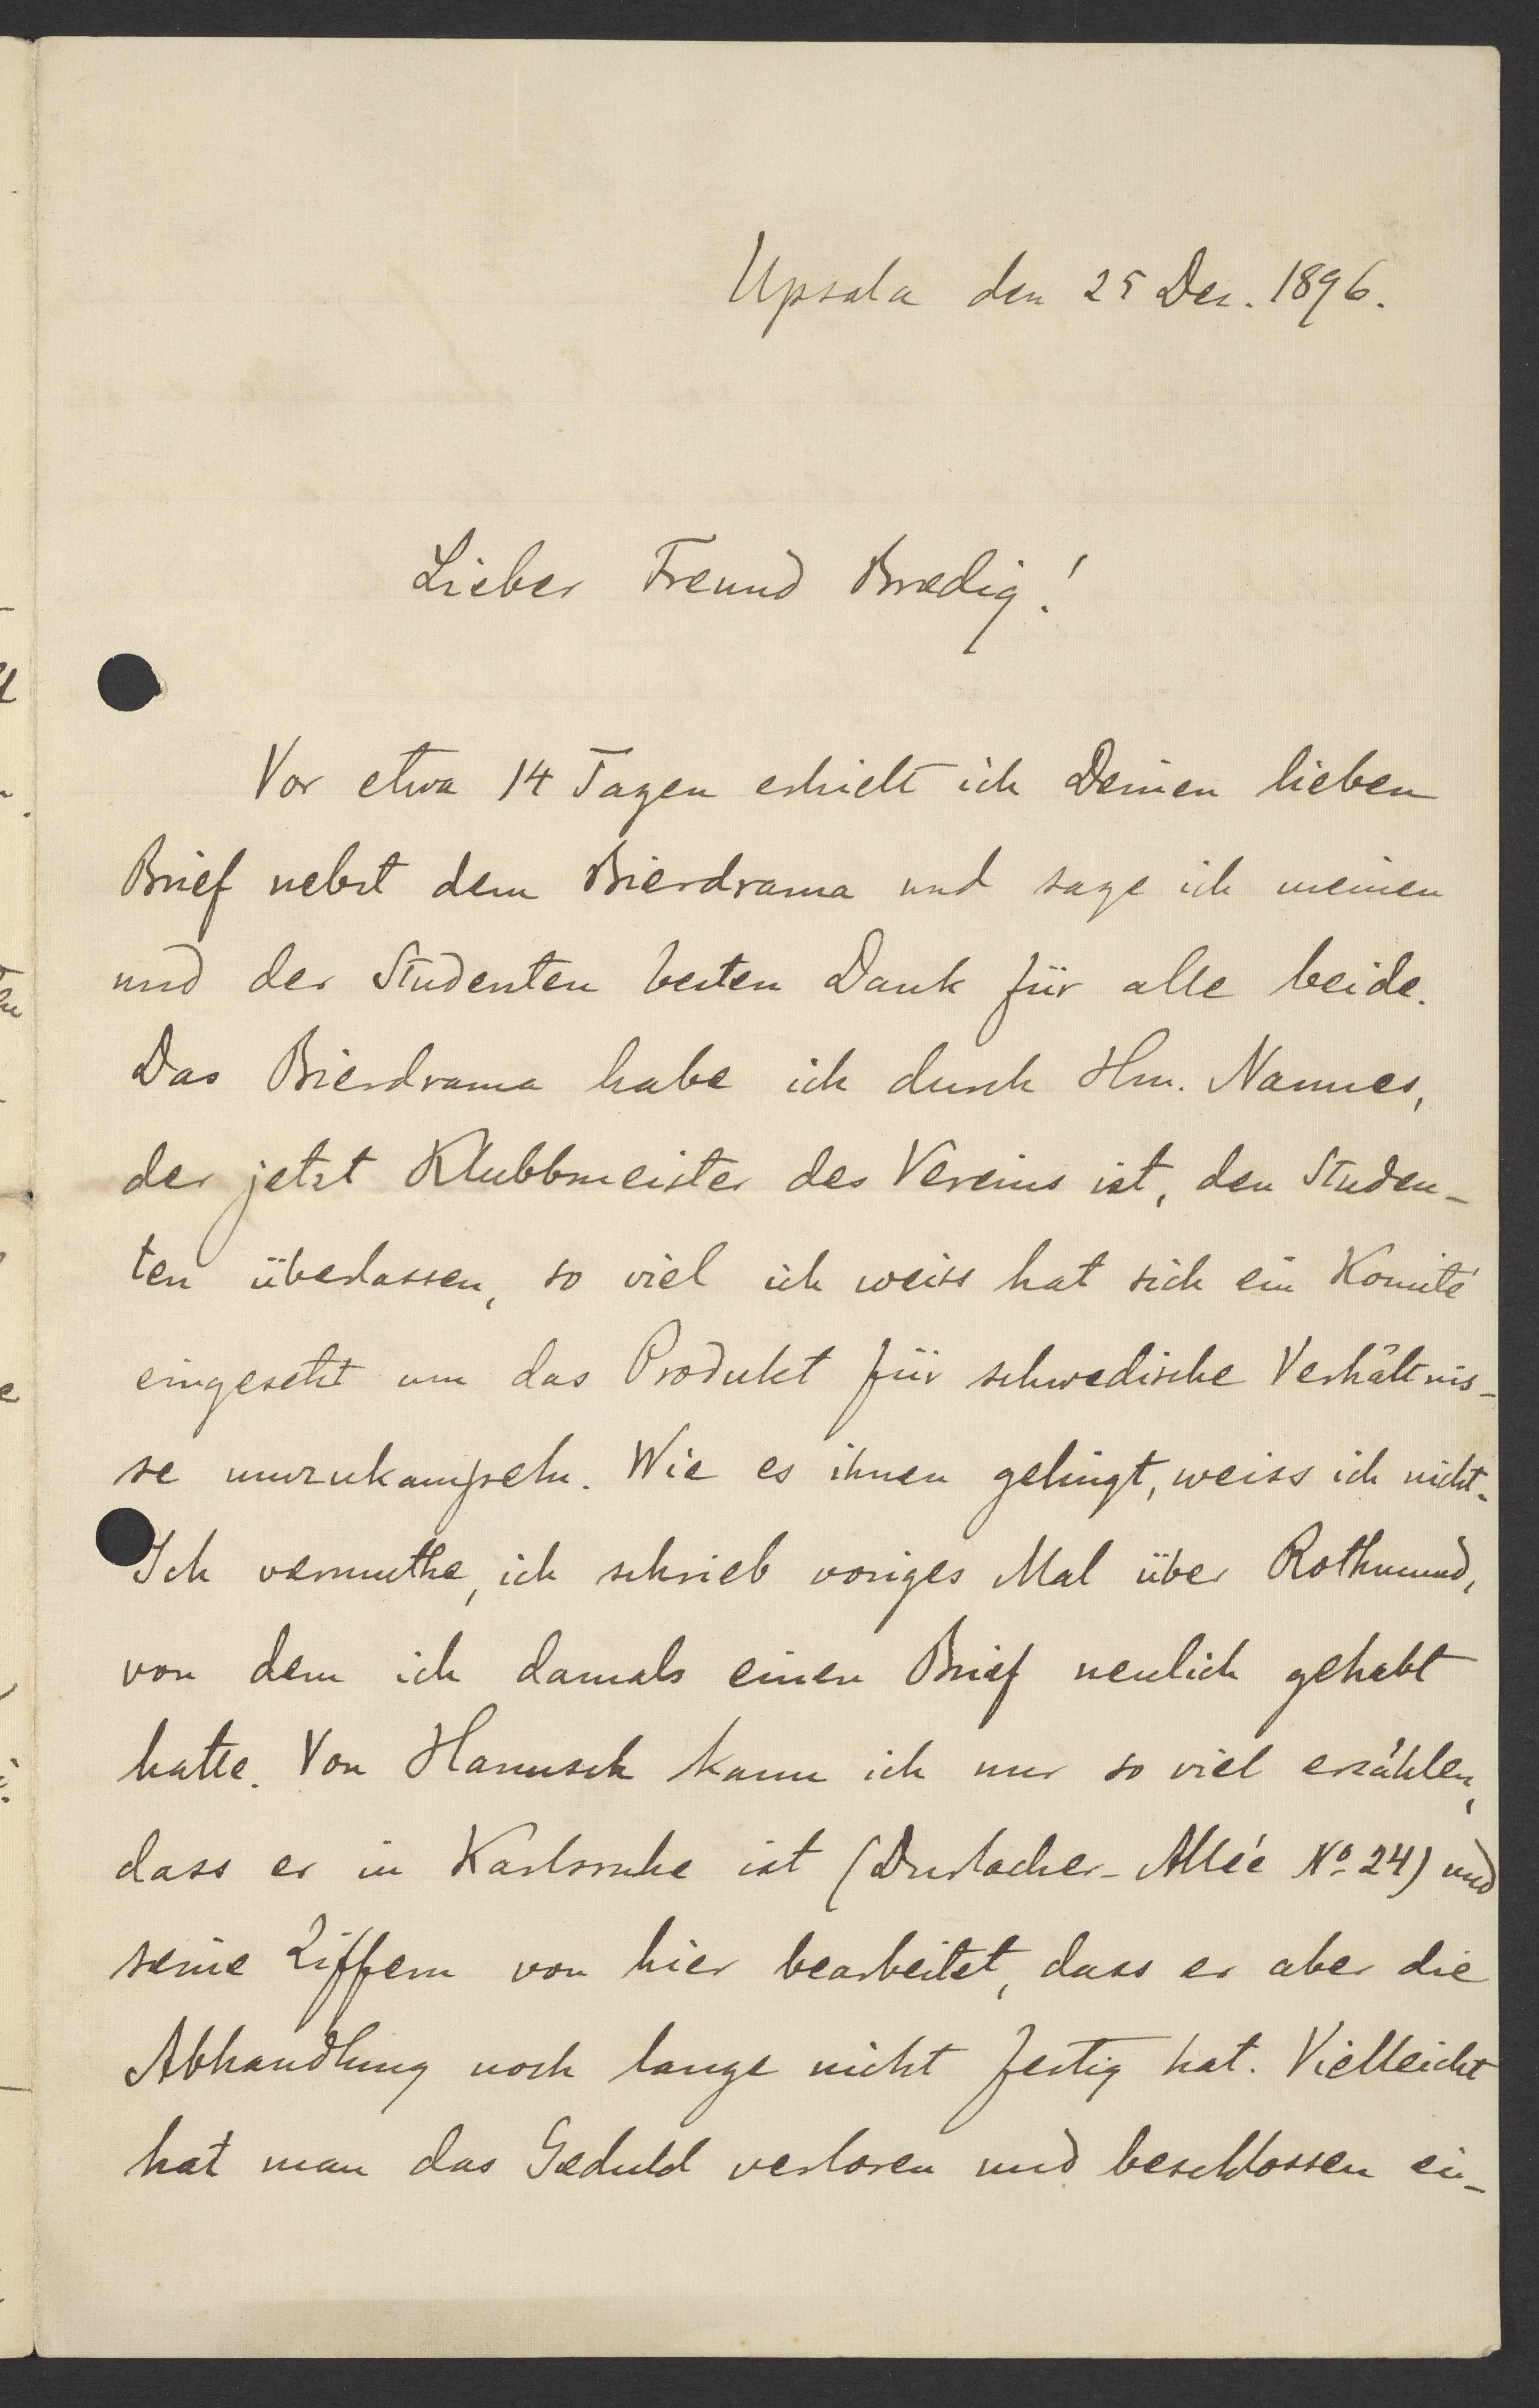 Upsala den 25 Dez. 1896.
Lieber Freund Bredig!
Vor etwa 14 Tagen erhielt ich Deinen lieben
Brief nebst dem Bierdrama und sage ich meinen
und der Studenten besten Dank für alle beide.
Das Bierdrama habe ich durch Hrn. Nannes,
der jetzt Klubbmeister des Vereins ist, den Studen-
ten überlassen, so viel ich weiss hat sich ein Komité
eingesetzt um das Produkt für schwedische Verhältnis-
se umzukampseln. Wie es ihnen gelingt, weiss ich nicht.
Ich vermuthe, ich schrieb voriges Mal über Rothmund,
von dem ich damals einen Brief neulich gehabt
hatte. Von Hanusch kann ich nur so viel erzählen,
dass er in Karlsruhe ist (Durlacher-Allée No 24) und
seine Ziffern von hier bearbeitet, dass er aber die
Abhandlung noch lange nicht fertig hat. Vielleicht
hat man das Geduld verloren und beschlossen ei-